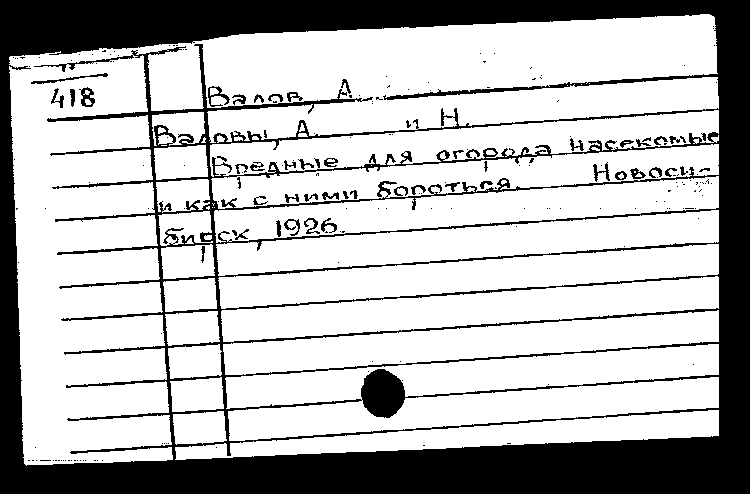 418
Валов, А.
Валовы, А. и Н.
Вредные для огорода насекомые
и как с ними бороться. Новоси-
бирск, 1926.